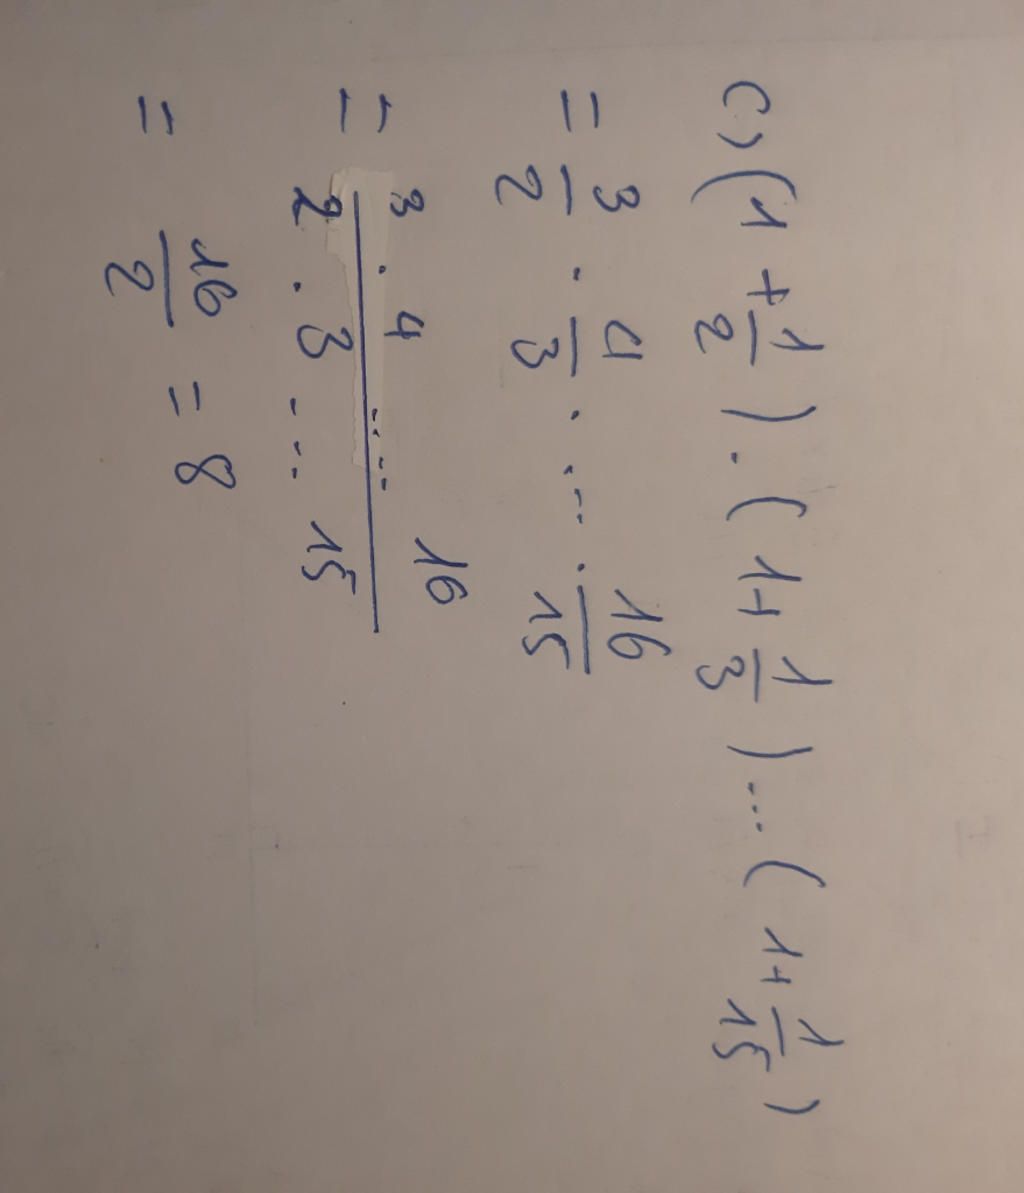 c) (1 + 1/2) . (1 + 1/3) ... (1 + 1/15)
= 3/2 . 4/3 . ... . 16/15
= = 3 . 4 ..... 16 / 2 . 3 .... 15
= 16/2 = 8